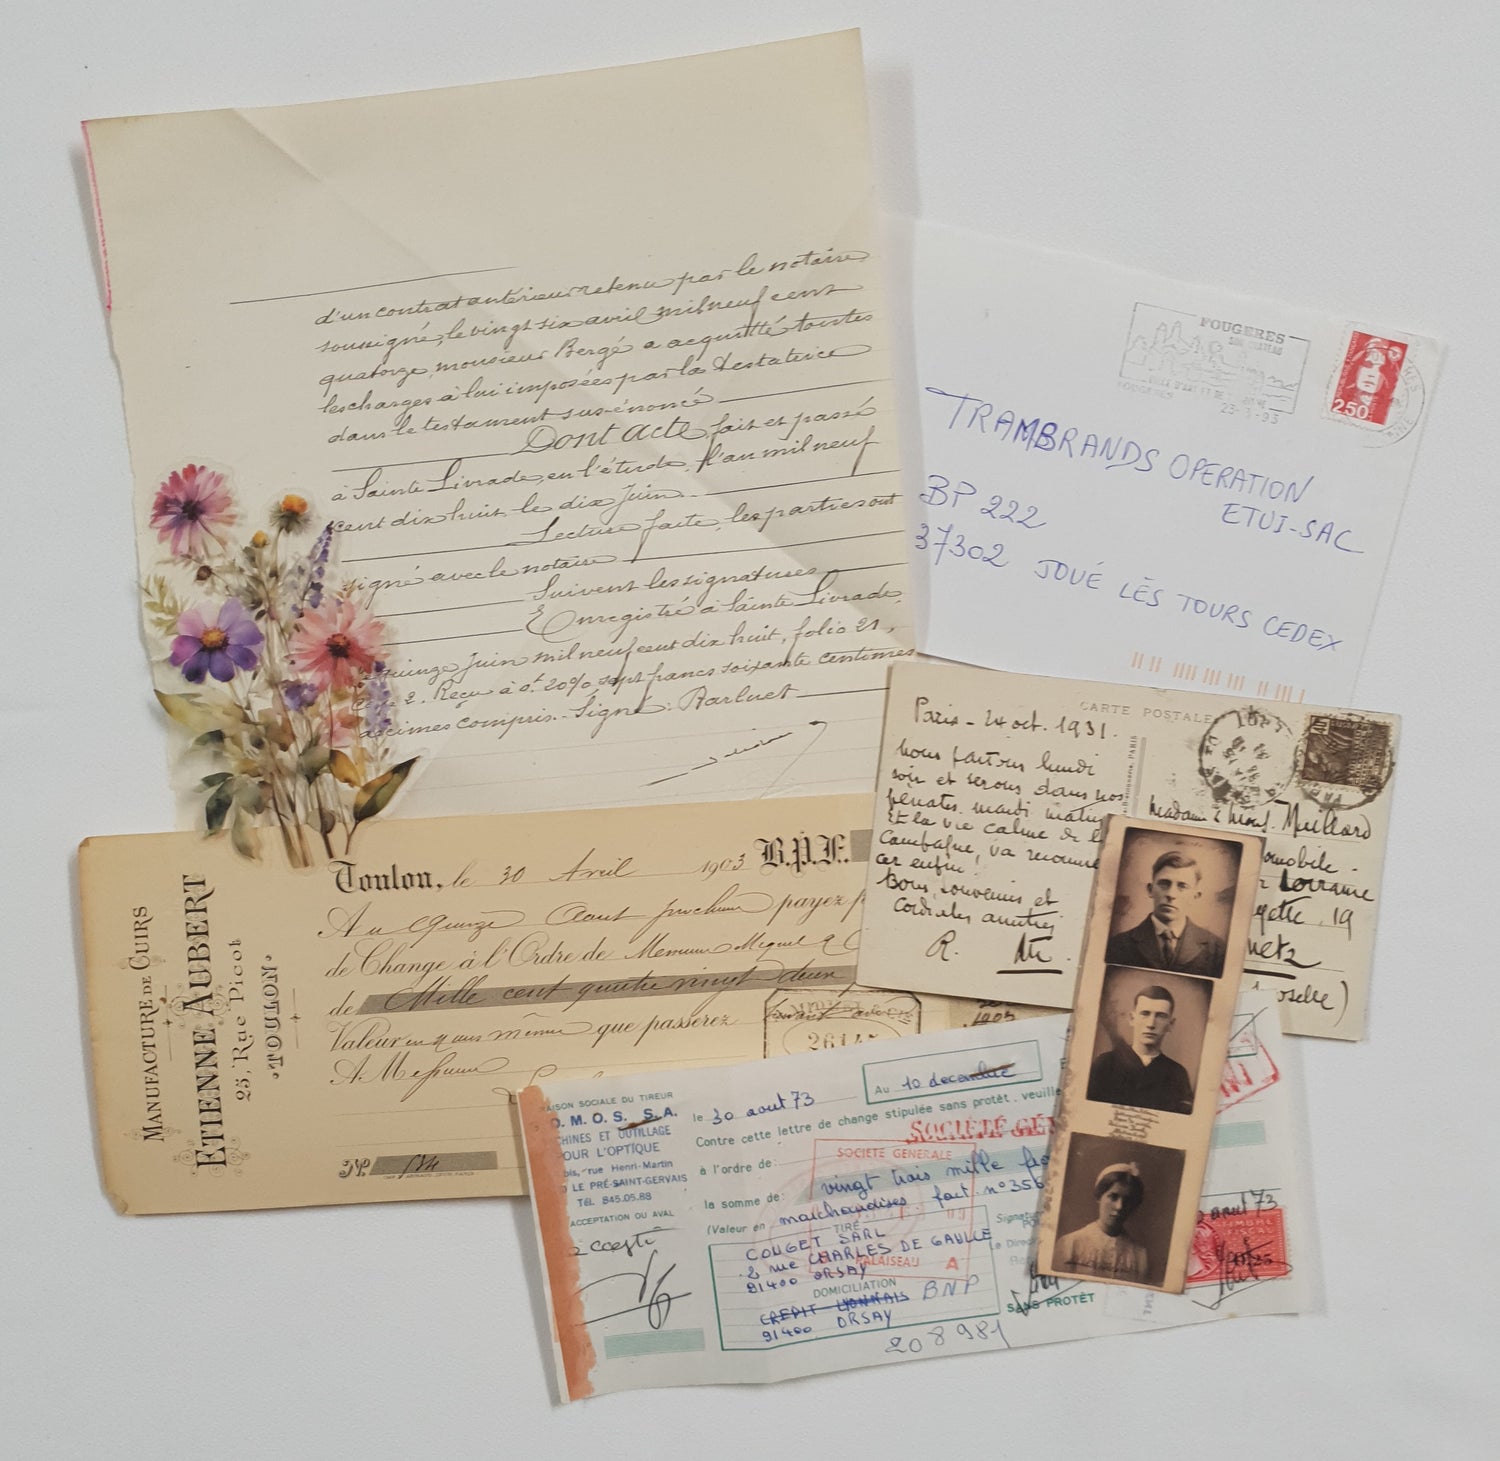 d'un contrat antérieur retenu par le notaire
soussigné, le vingt six avril mil neuf cent
quatorze, monsieur Bergé a acquitté toutes
les charges à lui imposées par la testatrice
dans le testament sus-énoncé
Dont acte, fait et passé
à Sainte Livrade, en l'étude, l'an mil neuf
cent dix huit, le dix Juin
Lecture faite, les parties ont
signé avec le notaire
Suivent les signatures
Enregistré à Sainte Livrade,
quinze Juin mil neuf cent dix huit, folio 21,
2. Reçu à 0f.20% sept francs soixante centimes
décimes compris. - Signé:
FOUGERES
SON CHATEAU
VILLE D'ART ET DE
FOUGERES
2,50
TRAMBRANDS OPERATION
ETUI-SAC
BP 222
37302 JOUÉ LÈS TOURS CEDEX
CARTE POSTALE
Paris - 24 oct. 1931.
Nous partons lundi
soir et serons dans nos
pénates mardi matin
Et la vie calme de l
campagne, va
car enfin!
Bons souvenirs et
cordiales amitiés
R.
Madame & Mons. Meillard
omobile -
Lorraine
19
Metz
oselle)
MANUFACTURE DE CUIRS
ETIENNE AUBERT
25, Rue Picot
TOULON
Toulon, le 30 Avril 1903 B.P.F.
Au Quinze Aout prochain payez p
de Change à l'Ordre de
de Mille cent quatre vingt deux
Valeur en nous même que passerez
A Messieurs
No.
RAISON SOCIALE DU TIREUR
O.M.O.S. S.A.
CHINES ET OUTILLAGE
POUR L'OPTIQUE
bis, rue Henri-Martin
LE PRÉ-SAINT-GERVAIS
Tél. 845.05.88
ACCEPTATION OU AVAL
accepté
le 30 aout 73
Au 10 decembre
Contre cette lettre de change stipulée sans protêt, veuille
SOCIÉTÉ GÉ
à l'ordre de:
SOCIETE GENERALE
la somme de: vingt trois mille
(Valeur en marchandises fact. n° 356
TIRÉ
COUGET SARL
2 rue CHARLES DE GAULLE
91400 ORSAY
PALAISEAU A
DOMICILIATION
CREDIT LYONNAIS BNP
91400 ORSAY
208981
Signatu
Le Direc
SANS PROTÊT
aout 73
TIMBRE
FISCAL